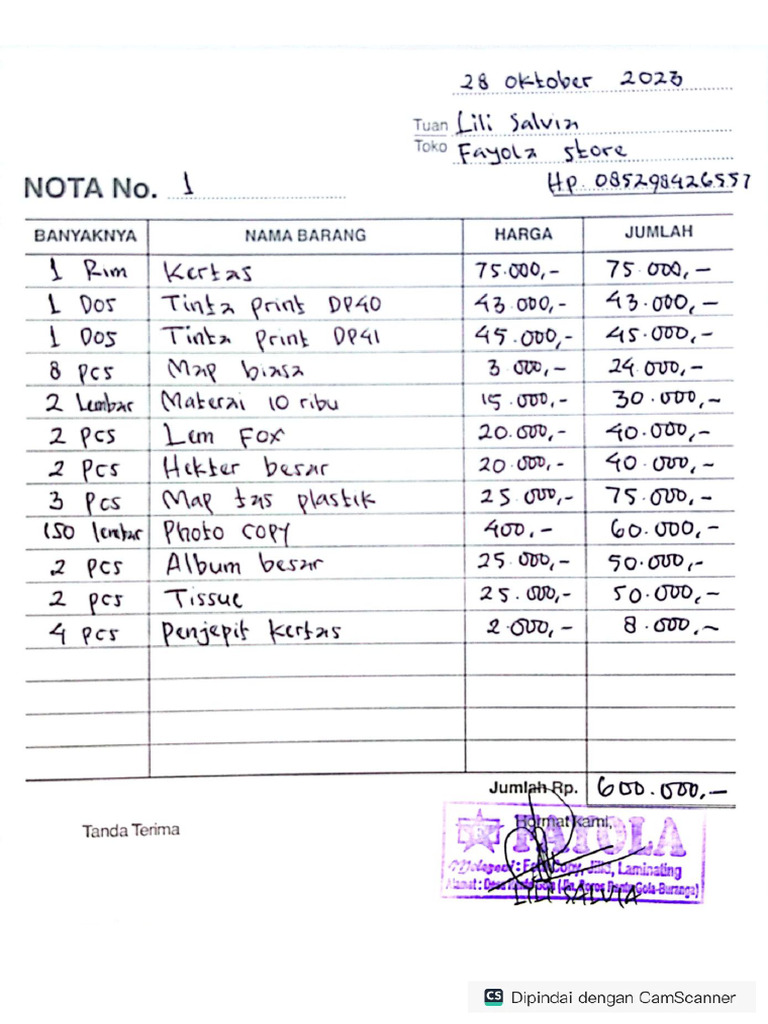 28 Oktober 2023
Tuan Lili Salvia
Toko Fayola store
NOTA No. 1 Hp. 085298426557
BANYAKNYA NAMA BARANG HARGA JUMLAH
1 Rim Kertas 75.000,- 75.000,-
1 Dos Tinta print DP40 43.000,- 43.000,-
1 Dos Tinta print DP41 45.000,- 45.000,-
8 pcs Map biasa 3.000,- 24.000,-
2 Lembar Materai 10 ribu 15.000,- 30.000,-
2 pcs Lem Fox 20.000,- 40.000,-
2 pcs Hekter besar 20.000,- 40.000,-
3 pcs Map tas plastik 25.000,- 75.000,-
150 lembar Photo copy 400,- 60.000,-
2 pcs Album besar 25.000,- 50.000,-
2 pcs Tissue 25.000,- 50.000,-
4 pcs penjepit kertas 2.000,- 8.000,-
Jumlah Rp. 600.000,-
Tanda Terima Hormat kami,
FAYOLA
Copy, Jilid, Laminating
Alamat : Desa Gola-Buranga)
LILI SALVIA
CS Dipindai dengan CamScanner